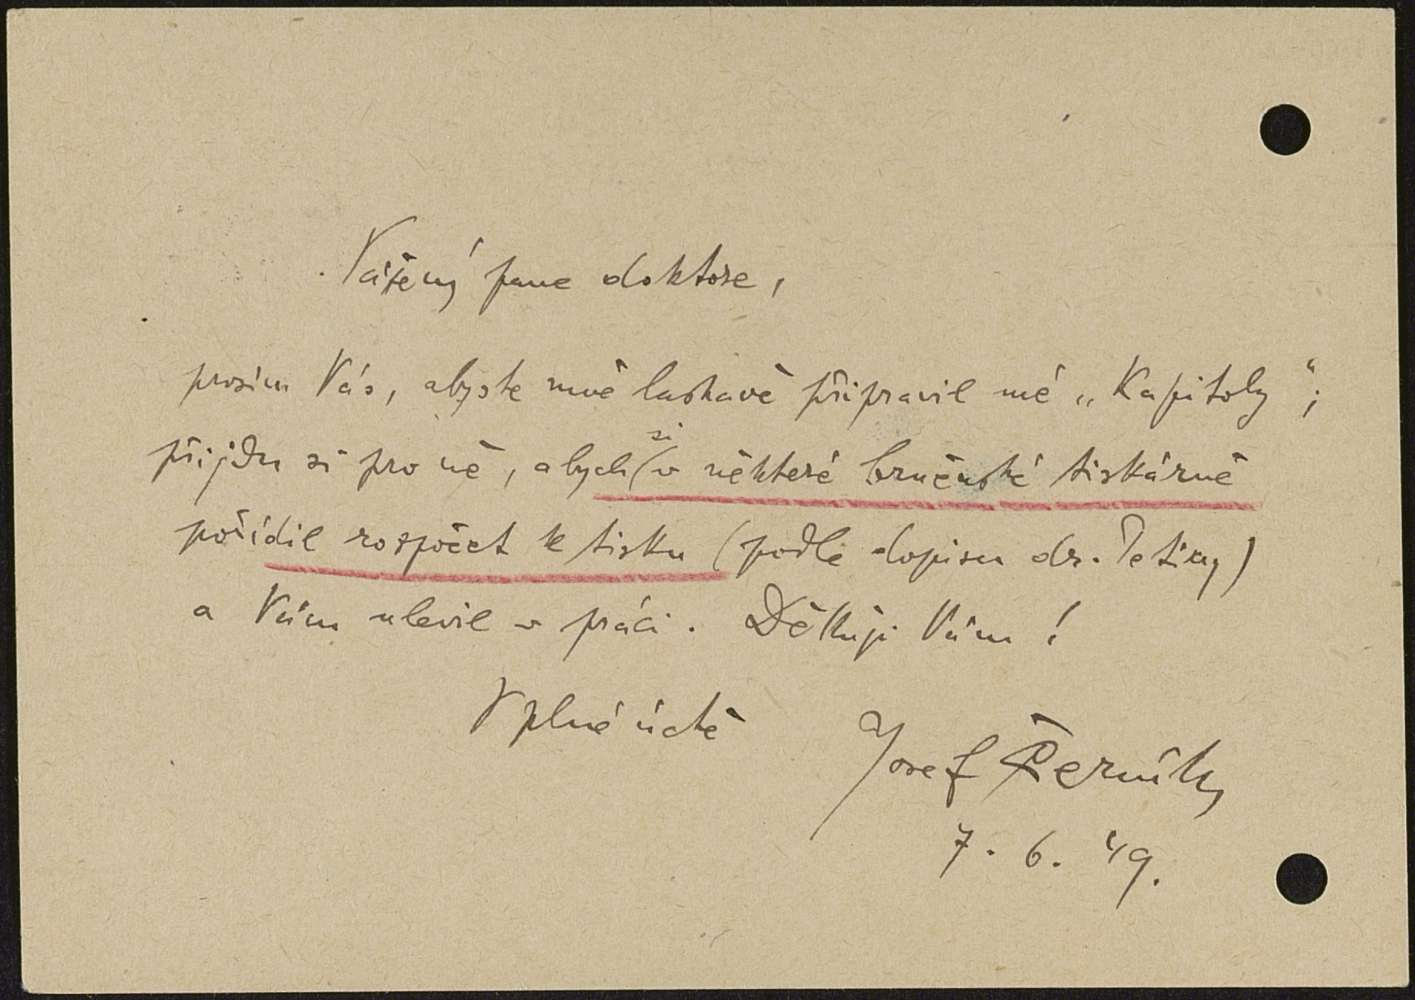 Vážený pane doktore,
prosím Vás, abyste mně laskavě připravil mé „Kapitoly“;
přijdu si pro ně, abych si v některé brněnské tiskárně
pořídil rozpočet k tisku (podle dopisu dr. Petiny)
a Vám ulevil v práci. Děkuji Vám!
V plné úctě Josef Černík
7. 6. 49.